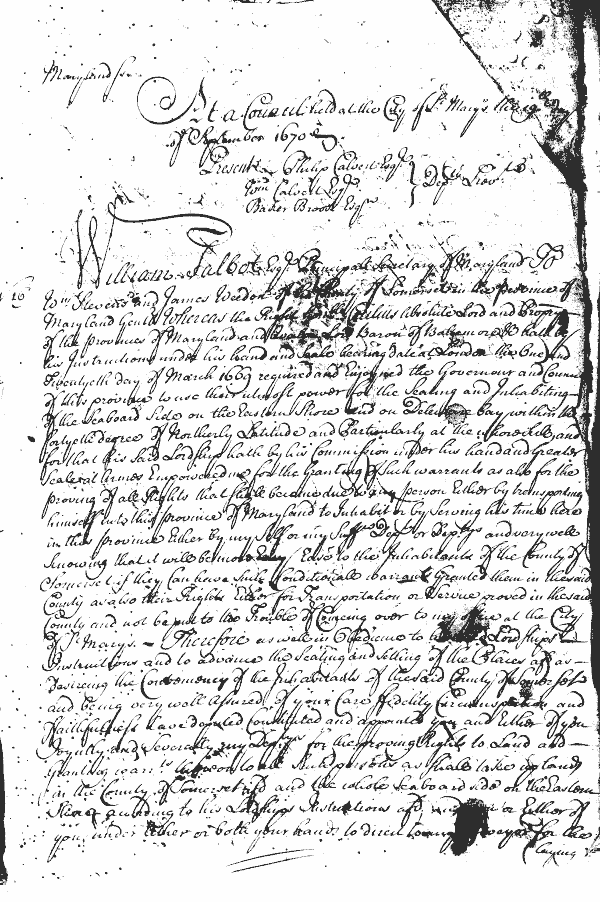 Maryland ss.
At a Council held at the City of St. Mary's the 19th day
of September 1670
Present Philip Calvert Esqr
Wm Calvert Esqr } Depty Lieuts
Baker Brooke Esqr
William Talbot Esqr Principall Secretary of Maryland To
Wm Stevens and James Weedon of the County of Somersett in the Province of
Maryland Gents Whereas the Right Cecilius Absolute Lord and Propry
of the province of Maryland and Lord Baron of Baltemore &c hath by
his Instructions under his hand and Seale bearing date at London the One and
Twentyeth day of March 1669 required and Enjoyned the Governour and Councill
of this province to use their utmost power for the Seating and Inhabiting
of the Seaboard Side on the Eastern Shore and on Delaware bay within the
fortyeth degree of Northerly Latitude and Particularly at the whorekill, and
for that his said Lordship hath by his Commission under his hand and Greater
Seale at Armes Empowered me for the Granting of Such warrants as also for the
proving of all Rights that shall become due to any person Either by transporting
himself into this Province of Maryland to Inhabit or by Serving his time here
in this province Either by my Self or my Depty or Deptys and very well
knowing that it will be more Ease to the Inhabitants of the County of
Somerset if they Can have Such Conditionall warrants Granted them in the said
County as also their Rights Either for Transportation or Service proved in the said
County and not be put to the Trouble of Comeing over to my office at the City
of St. Marys. Therefore as well in Obedience to his Lordships
Instructions and to advance the Seating and Setling of the Places afd as
Desireing the Conveniency of the Inhabitants of the said County of Somersett
and being very well Assured of your Care Fidelity Circumspection and
Faithfulness have deputed Constituted and appointed you and Either of you
Joyntly and Severally my Deptys for the proving Rights to Land and
Granting warrts thereon to all Such persons as shall take up land
in the County of Somersett afd and the whole Seaboard side on the Eastern
Shore according to his Lordships Instructions afd or Either of
you under Either or both your hands to direct for the
laying